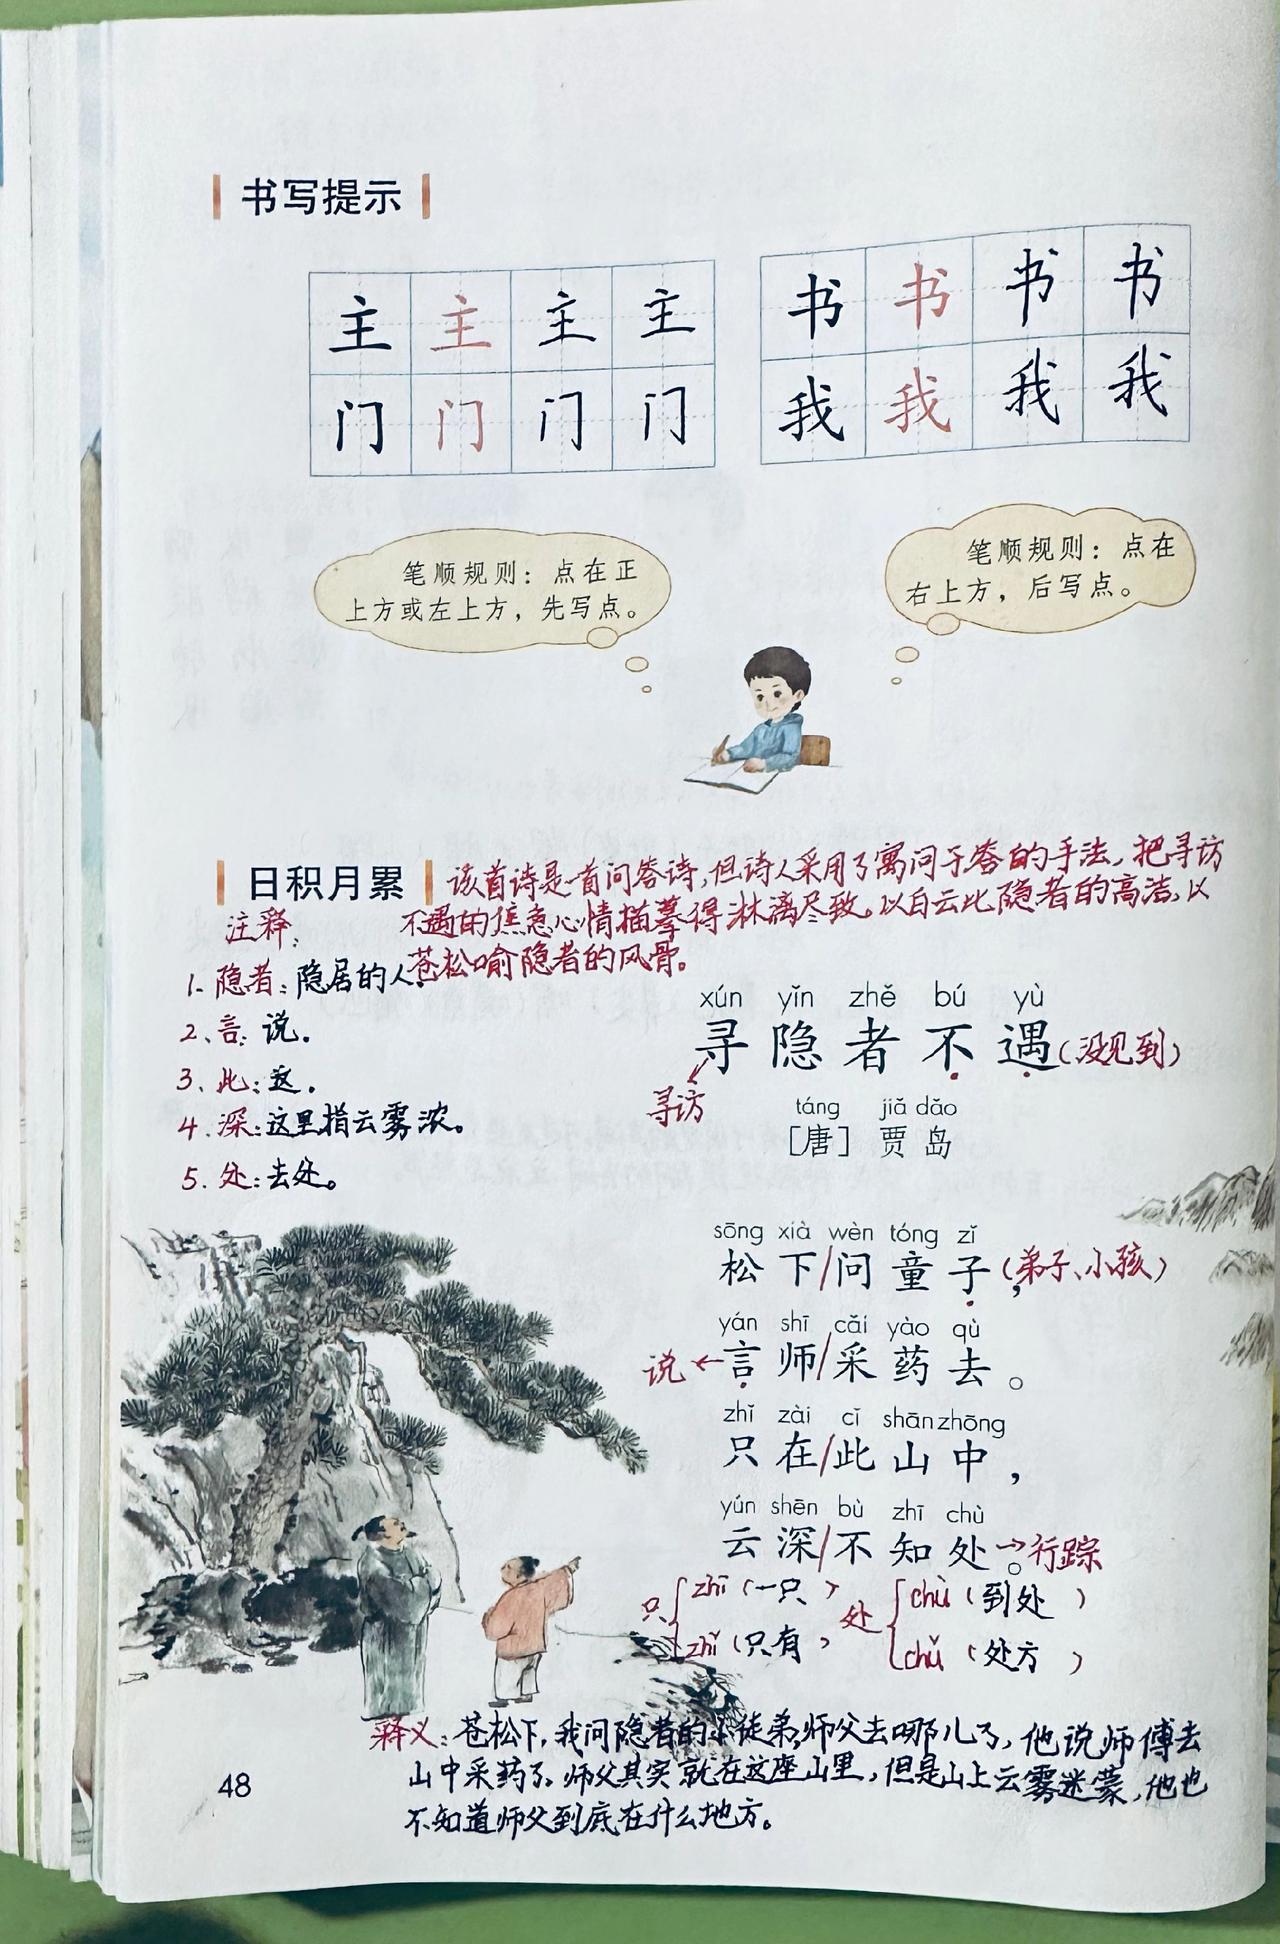 书写提示
主 主 主 主
门 门 门 门
书 书 书 书
我 我 我 我
笔顺规则：点在正
上方或左上方，先写点。
笔顺规则：点在
右上方，后写点。
日积月累
该首诗是一首问答诗，但诗人采用了寓问于答的手法，把寻访
不遇的焦急心情描摹得淋漓尽致。以白云比隐者的高洁，以
苍松喻隐者的风骨。
注释：
1. 隐者：隐居的人。
2、言：说。
3、此：这。
4. 深：这里指云雾浓。
5. 处：去处。
xún yǐn zhě bú yù
寻隐者不遇（没见到）
寻访
táng jiǎ dǎo
［唐］贾岛
sōng xià wèn tóng zǐ
松下/问童子，（弟子、小孩）
yán shī cǎi yào qù
说←言师/采药去。
zhǐ zài cǐ shān zhōng
只在/此山中，
yún shēn bù zhī chù
云深/不知处。→行踪
只 zhī（一只） 处 chù（到处）
zhǐ（只有） chǔ（处方）
释义：苍松下，我问隐者的小徒弟，师父去哪儿了，他说师傅去
山中采药了。师父其实就在这座山里，但是山上云雾迷蒙，他也
不知道师父到底在什么地方。
48